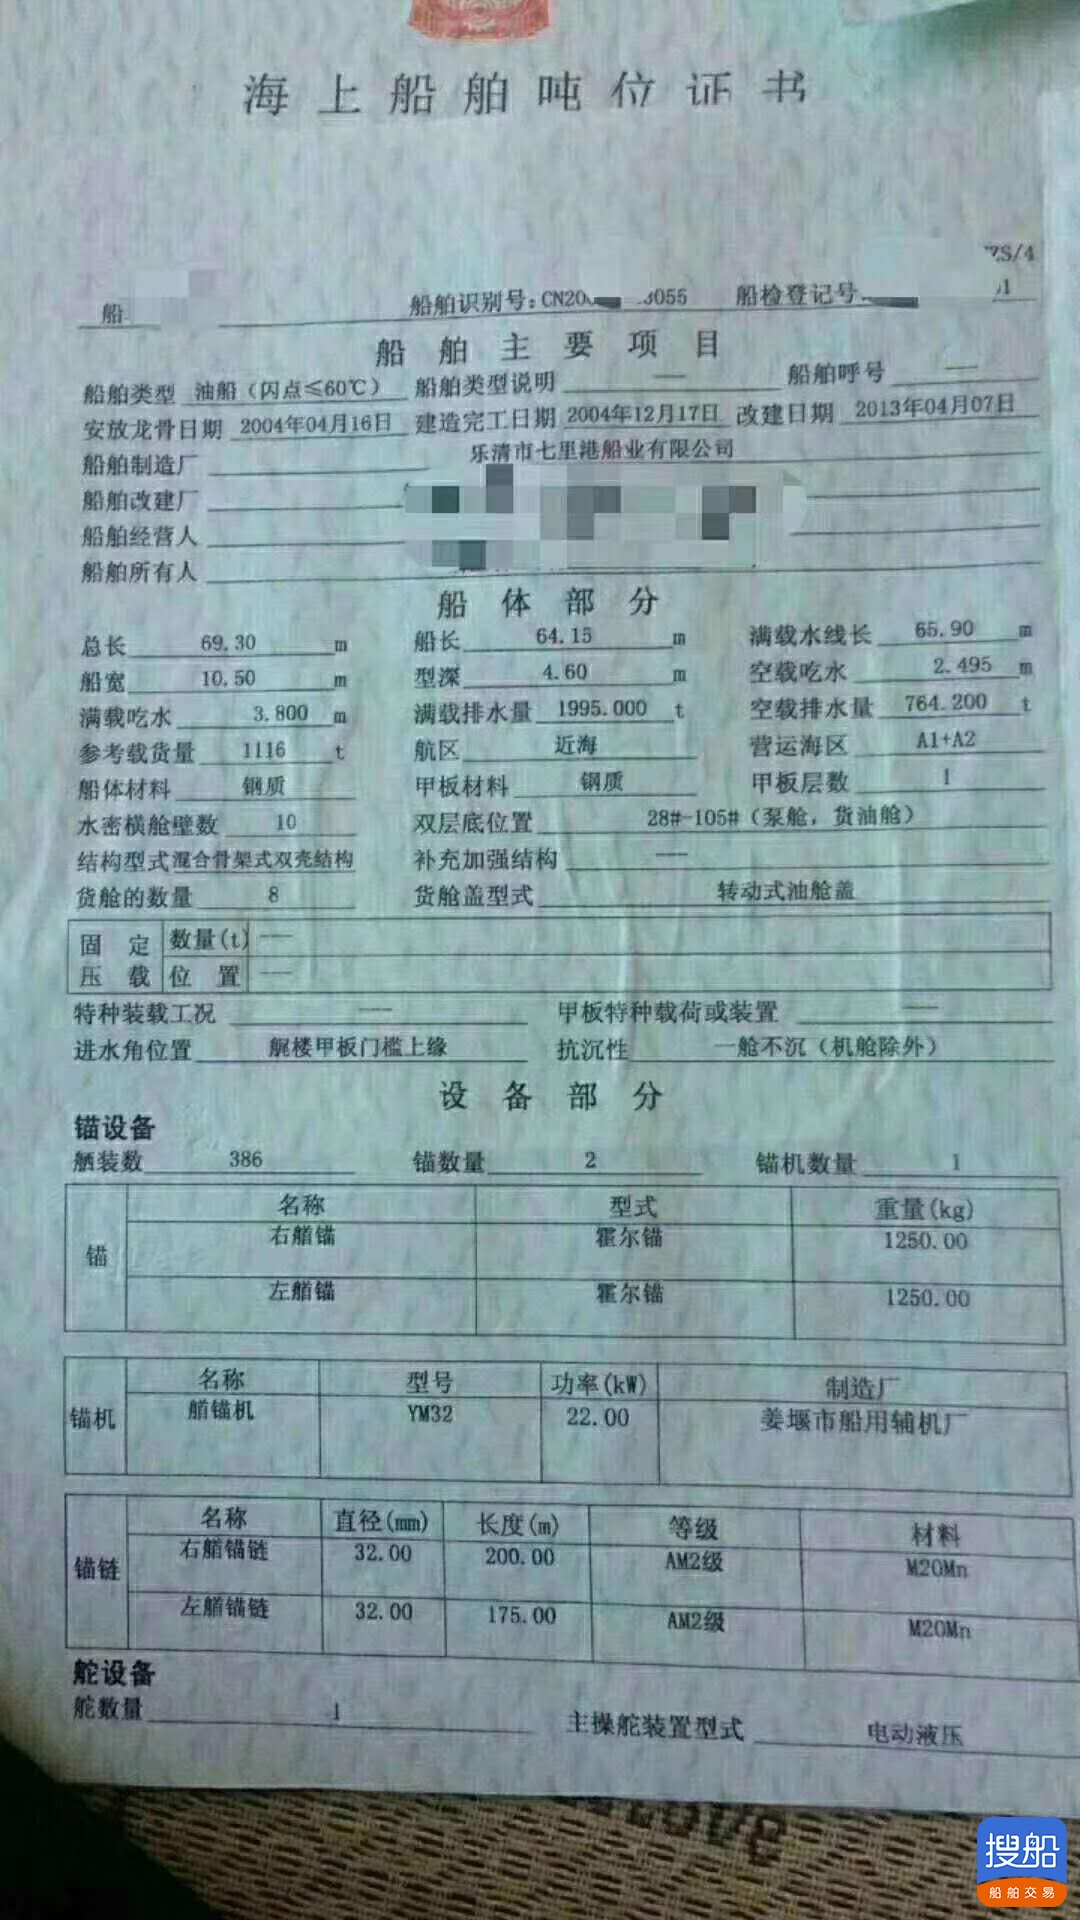 海上船舶吨位证书
ZS/4
船 船舶识别号:CN20 3055 船检登记号 1
船舶主要项目
船舶类型 油船（闪点≤60℃） 船舶类型说明 —— 船舶呼号 ——
安放龙骨日期 2004年04月16日 建造完工日期 2004年12月17日 改建日期 2013年04月07日
船舶制造厂 乐清市七里港船业有限公司
船舶改建厂
船舶经营人
船舶所有人
船体部分
总长 69.30 m 船长 64.15 m 满载水线长 65.90 m
船宽 10.50 m 型深 4.60 m 空载吃水 2.495 m
满载吃水 3.800 m 满载排水量 1995.000 t 空载排水量 764.200 t
参考载货量 1116 t 航区 近海 营运海区 A1+A2
船体材料 钢质 甲板材料 钢质 甲板层数 1
水密横舱壁数 10 双层底位置 28#-105#（泵舱，货油舱）
结构型式 混合骨架式双壳结构 补充加强结构 ——
货舱的数量 8 货舱盖型式 转动式油舱盖
固定压载 数量(t) ——
位置 ——
特种装载工况 —— 甲板特种载荷或装置 ——
进水角位置 艉楼甲板门槛上缘 抗沉性 一舱不沉（机舱除外）
设备部分
锚设备
舾装数 386 锚数量 2 锚机数量 1
名称 型式 重量(kg)
锚
右艏锚 霍尔锚 1250.00
左艏锚 霍尔锚 1250.00
名称 型号 功率(kW) 制造厂
锚机 艏锚机 YM32 22.00 姜堰市船用辅机厂
名称 直径(mm) 长度(m) 等级 材料
锚链
右艏锚链 32.00 200.00 AM2级 M20Mn
左艏锚链 32.00 175.00 AM2级 M20Mn
舵设备
舵数量 1 主操舵装置型式 电动液压
搜船
船舶交易